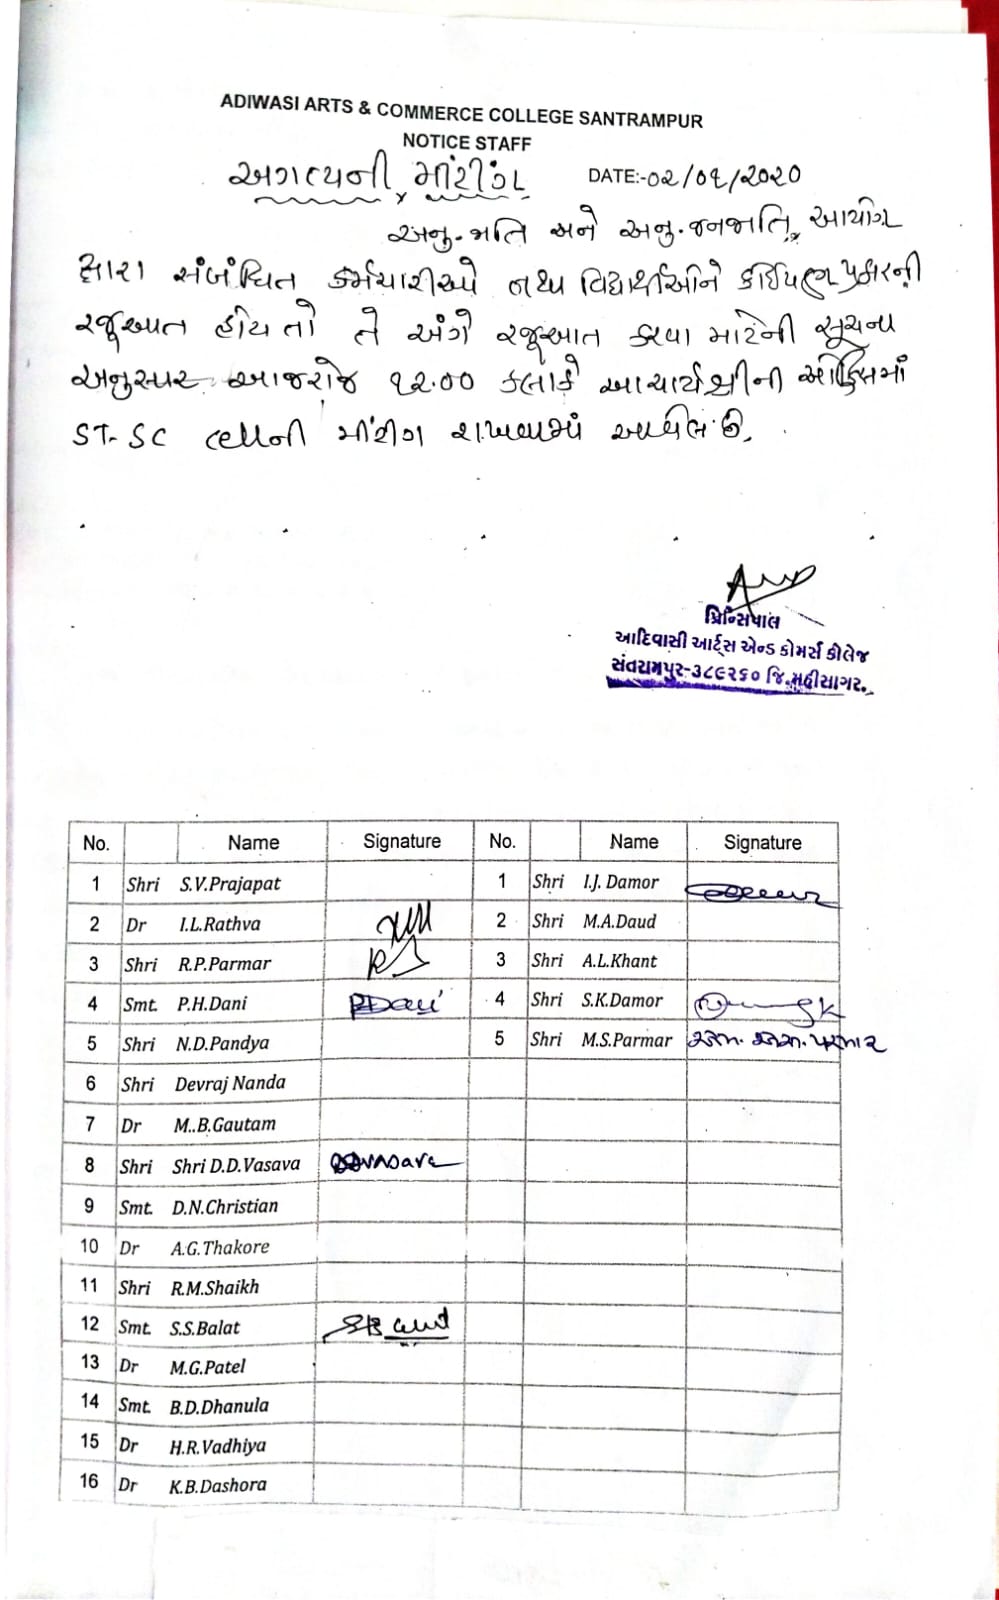 ADIWASI ARTS & COMMERCE COLLEGE SANTRAMPUR
NOTICE STAFF
અગત્યની મીટીંગ DATE:-૦૨/૦૧/૨૦૨૦
અનુ.જાતિ અને અનુ.જનજાતિ આયોગ
દ્વારા સંબંધિત કર્મચારીઓ તથા વિદ્યાર્થીઓને કોઈપણ પ્રકારની
રજૂઆત હોય તો તે અંગે રજૂઆત કરવા માટેની સૂચના
અનુસાર આજરોજ ૧૨.૦૦ કલાકે આચાર્યશ્રીની ઓફિસમાં
ST-SC cellની મીટીંગ રાખવામાં આવેલ છે.
પ્રિન્સિપાલ
આદિવાસી આર્ટ્સ એન્ડ કોમર્સ કોલેજ
સંતરામપુર-૩૮૯૨૬૦ જિ.મહીસાગર.
No. Name Signature No. Name Signature
1 Shri S.V.Prajapat 1 Shri I.J. Damor
2 Dr I.L.Rathva 2 Shri M.A.Daud
3 Shri R.P.Parmar 3 Shri A.L.Khant
4 Smt. P.H.Dani PDani 4 Shri S.K.Damor
5 Shri N.D.Pandya 5 Shri M.S.Parmar એમ. એસ. પરમાર
6 Shri Devraj Nanda
7 Dr M..B.Gautam
8 Shri Shri D.D.Vasava DDVasava
9 Smt. D.N.Christian
10 Dr A.G.Thakore
11 Shri R.M.Shaikh
12 Smt. S.S.Balat
13 Dr M.G.Patel
14 Smt. B.D.Dhanula
15 Dr H.R.Vadhiya
16 Dr K.B.Dashora